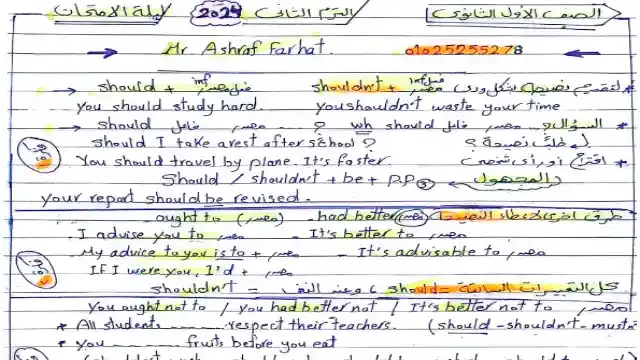 الصف الأول الثانوى الترم الثانى 2024 ليلة الامتحان
Mr. Ashraf Farhat. 01025255278
should + inf مصدر shouldn't + inf مصدر لتقديم نصيحة بشكل ودى *
You should study hard. You shouldn't waste your time
should فاعل مصدر ......? wh should فاعل مصدر ......? السؤال *
Should I take a rest after school? طلب نصيحة ؟
You should travel by plane. It's faster. اقتراح أو رأى شخصى
Should / shouldn't + be + p.p③ المجهول
your report should be revised.
ought to (مصدر) _ had better مصدر طرق أخرى لاعطاء النصيحة
. I advise you to مصدر _ It's better to مصدر
. My advice to you is to + مصدر _ It's advisable to مصدر
. If I were you, I'd + مصدر
كل التعبيرات السابقة = should وعند النفى = shouldn't
You ought not to / you had better not / It's better not to مصدر
* All students ............ respect their teachers. (should - shouldn't - must
* You ............ fruits before you eat